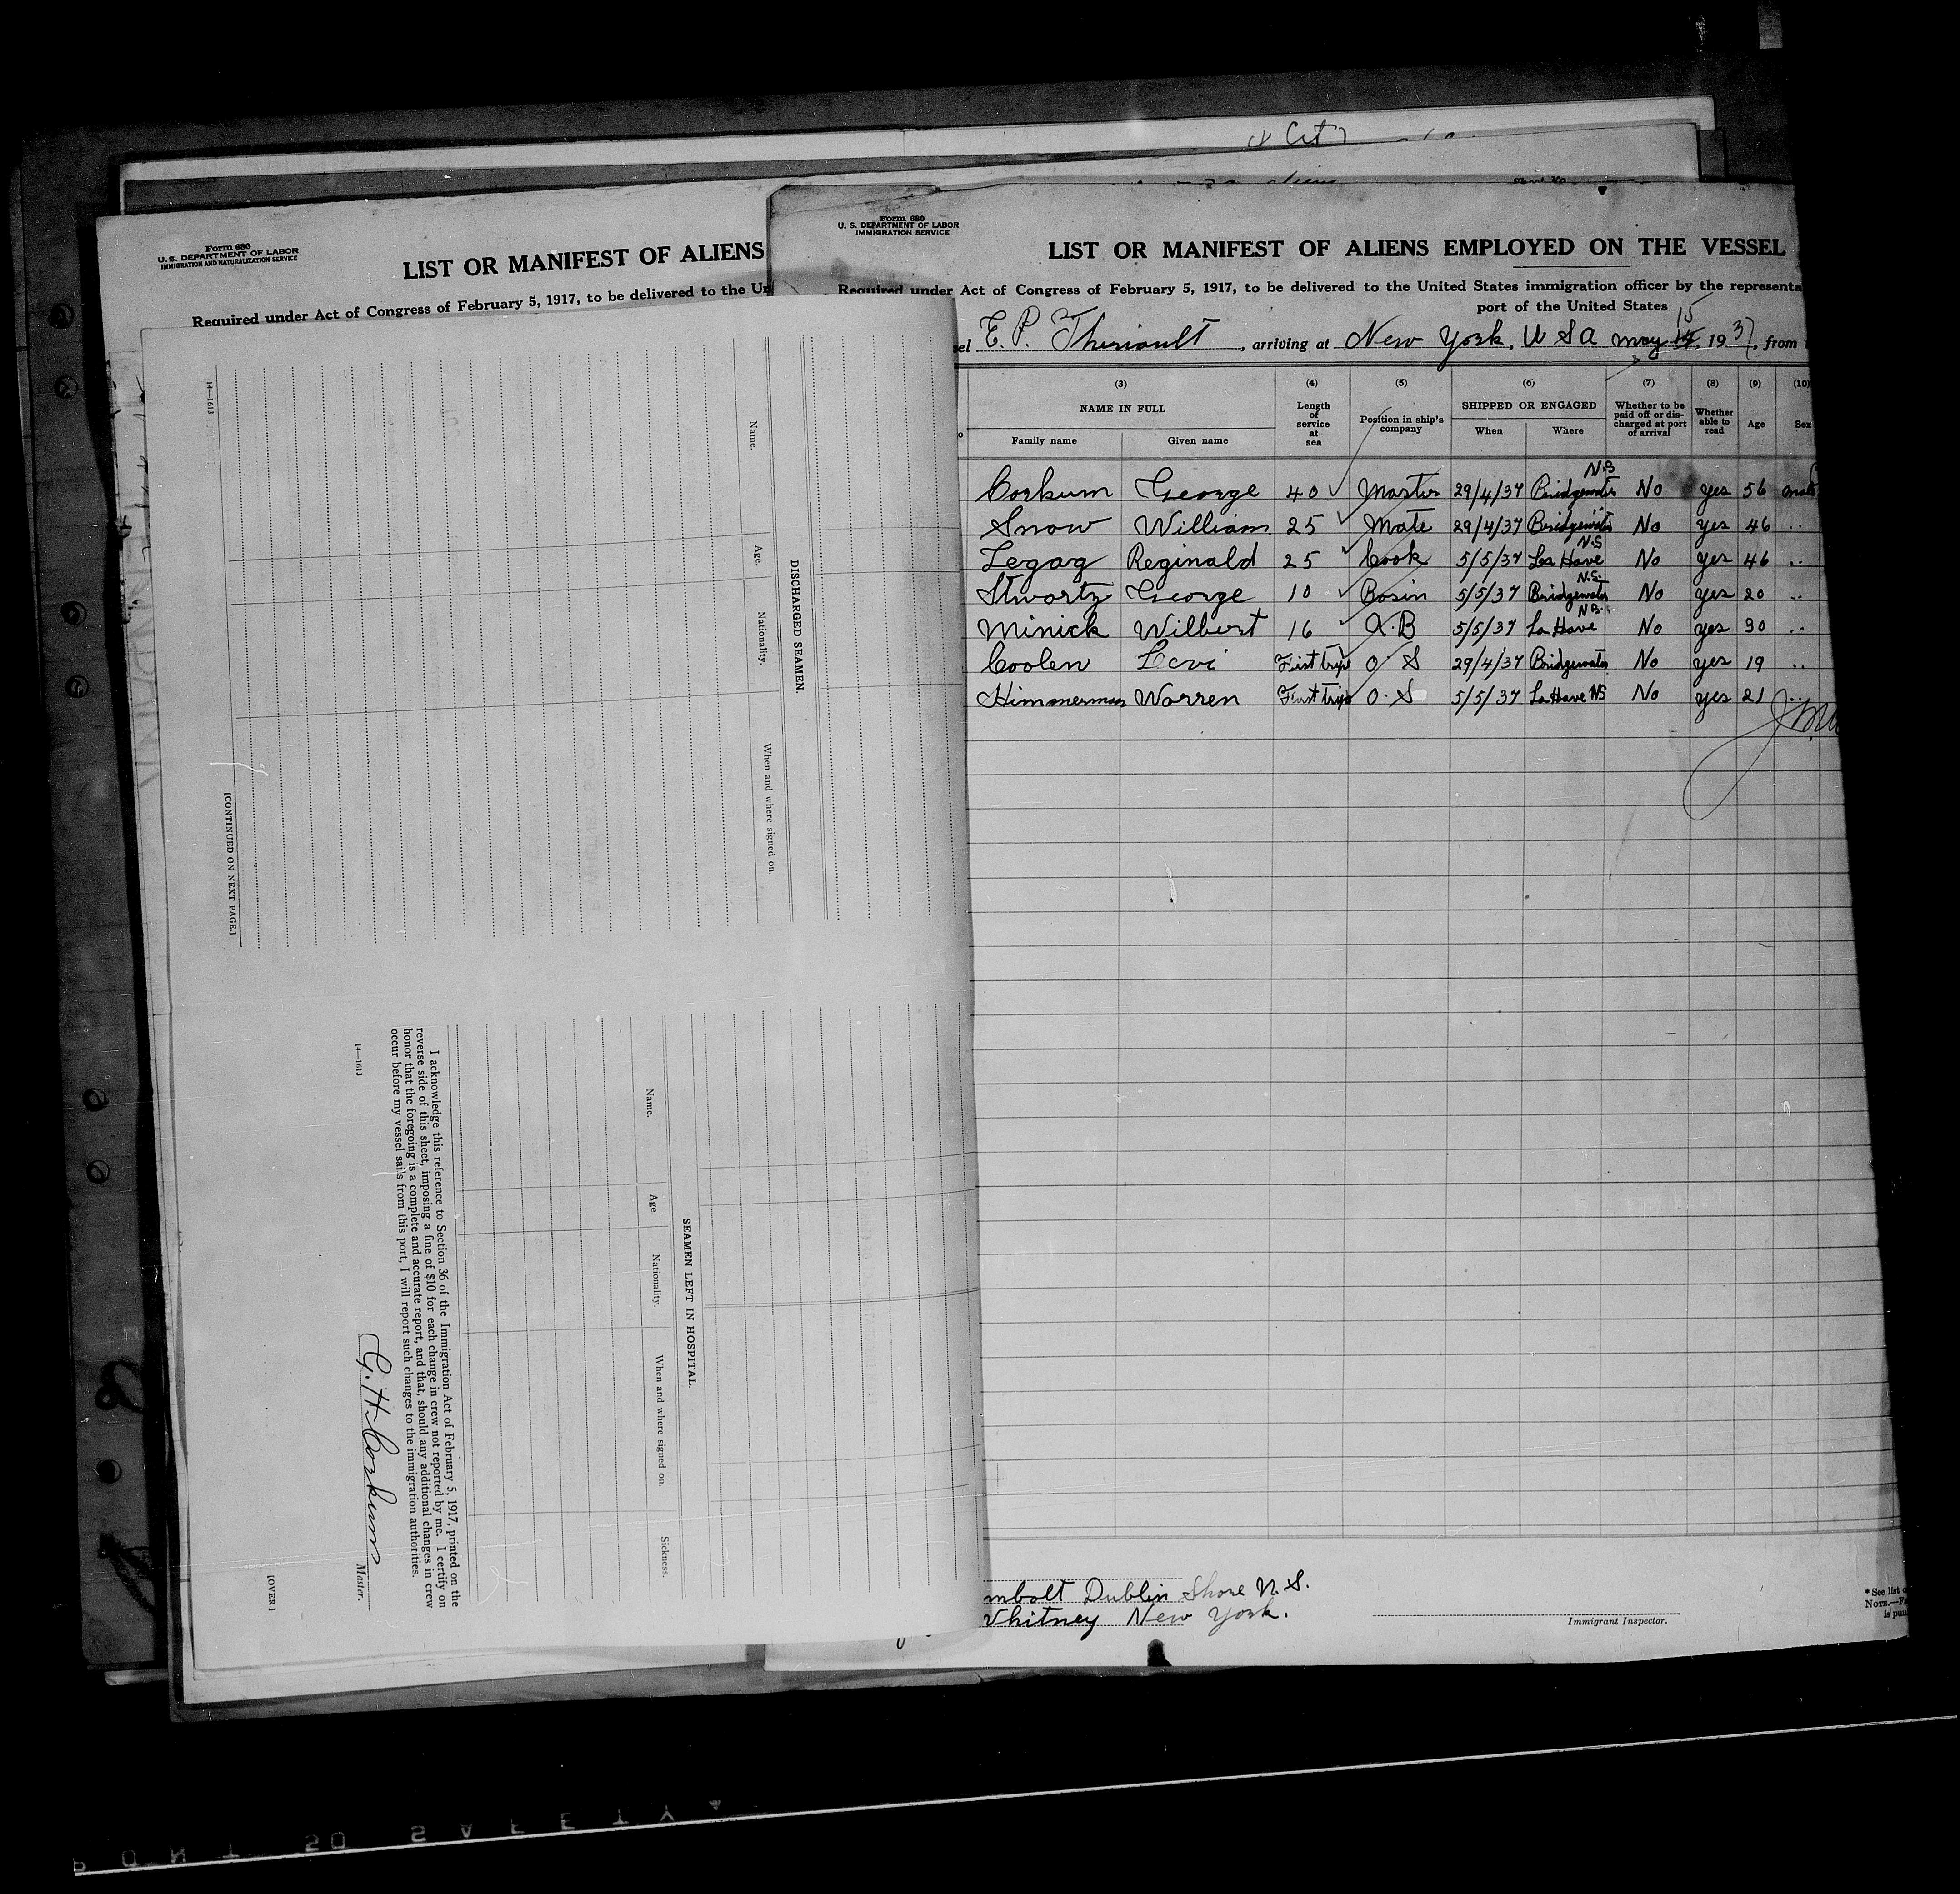 & Cit
Form 680
U. S. DEPARTMENT OF LABOR
IMMIGRATION AND NATURALIZATION SERVICE
LIST OR MANIFEST OF ALIENS
Required under Act of Congress of February 5, 1917, to be delivered to the Un
Form 680
U. S. DEPARTMENT OF LABOR
IMMIGRATION SERVICE
LIST OR MANIFEST OF ALIENS EMPLOYED ON THE VESSEL
Required under Act of Congress of February 5, 1917, to be delivered to the United States immigration officer by the representa
port of the United States
sel E. P. Theriault, arriving at New York, U S A may 15 14, 1937, from
(3) (4) (5) (6) (7) (8) (9) (10)
NAME IN FULL Length of service at sea Position in ship's company SHIPPED OR ENGAGED Whether to be paid off or discharged at port of arrival Whether able to read Age Sex
Family name Given name When Where
Corkum George 40 Master 29/4/37 Bridgewater N.B No yes 56 male
Snow William 25 Mate 29/4/37 Bridgewater No yes 46 ..
Legag Reginald 25 Cook 5/5/37 La Have N.S No yes 46 ..
Stwartz George 10 Bosin 5/5/37 Bridgewater N.S. No yes 20 ..
Minick Wilbert 16 A.B 5/5/37 La Have N.B. No yes 30 ..
Coolen Levi First trip O S 29/4/37 Bridgewater No yes 19 ..
Himmerman Warren First trip O. S 5/5/37 La Have NS No yes 21 ..
mbolt Dublin Shore N. S.
Whitney New York.
Immigrant Inspector.
* See list o
NOTE.—Fa
is pun
DISCHARGED SEAMEN.
Name. Age. Nationality. When and where signed on.
14—1613
[CONTINUED ON NEXT PAGE.]
SEAMEN LEFT IN HOSPITAL.
Name. Age Nationality. When and where signed on. Sickness.
I acknowledge this reference to Section 36 of the Immigration Act of February 5, 1917, printed on the
reverse side of this sheet, imposing a fine of $10 for each change in crew not reported by me. I certify on
honor that the foregoing is a complete and accurate report, and that, should any additional changes in crew
occur before my vessel sails from this port, I will report such changes to the immigration authorities.
G. H. Corkum
Master.
14—1613
[OVER.]
SAFETY